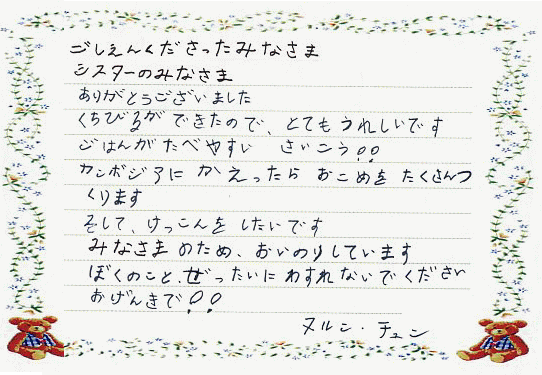 ごしえんくださったみなさま
シスターのみなさま
ありがとうございました
くちびるができたので、とてもうれしいです
ごはんがたべやすい さいこう!!
カンボジアに かえったら おこめを たくさんつ
くります
そして、けっこんを したいです
みなさまのため、おいのりしています
ぼくのこと、ぜったいに わすれないでください
おげんきで!!
ヌルン・チュン